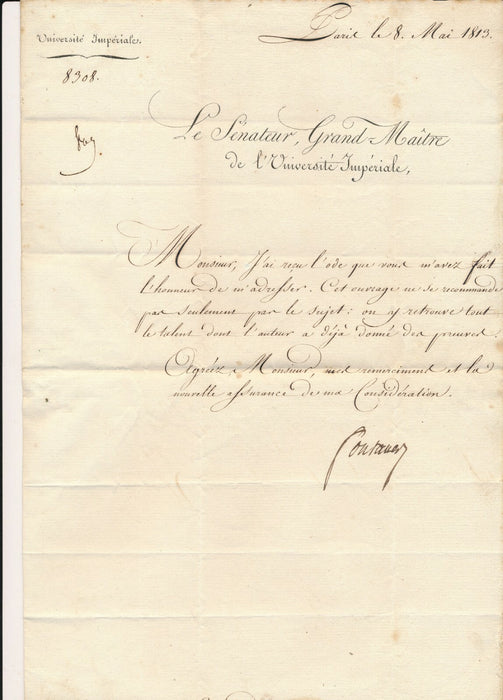 Université Impériale.
Paris le 8. Mai 1813.
8308.
Le Sénateur, Grand-Maître
de l'Université Impériale,
Monsieur, J'ai reçu l'ode que vous m'avez fait
l'honneur de m'adresser. Cet ouvrage ne se recommande
pas seulement par le sujet: on y retrouve tout
le talent dont l'auteur a déjà donné des preuves.
Agréez, Monsieur, mes remerciment et la
nouvelle assurance de ma Considération.
Fontanes